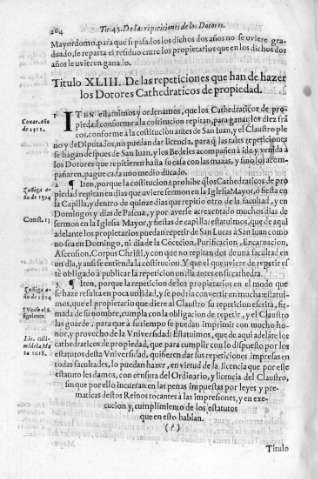 204 Tit. 43. De las repeticiones de los Dotores.
Mayordomo, para que si passados los dichos dos años no se uviere gra-
duado, se reparta el residuo entre los propietarios que en los dichos dos
años le uvieren ganado.
Titulo XLIII. De las repeticiones que han de hazer
los Dotores Cathedraticos de propiedad.
ITEN estatuimos y ordenamos, que los Cathedraticos de pro-
piedad conforme a la constitucion repitan, para ganar los diez flo
rines, conforme a la costitucion antes de San Juan, y el Claustro ple
no y de Diputados, no puedan dar licencia, para que las tales repeticiones
se hagan despues de San Juan, y los Bedeles acompañen a ida, y venida à
los Dotores que repitieren hasta su casa con las mazas, y sino los acom-
pañaren, pague cada uno medio ducado.
2. ¶ Iten, porque la costitucion prohibe q̃ los Cathedraticos de pro
piedad repitan en dias que uviere sermon en la Iglesia Mayor, o fiesta en
la Capilla, y dentro de quinze dias que repitio otro de la facultad, y en
Domingos y dias de Pascua, y por averse acrecentado muchos dias de
sermon en la Iglesia Mayor, y fiestas en Capilla: estatuimos, que de aqui
adelante los propietarios puedan repetir de San Lucas à San Juan como
no sea en Domingo, ni dia de la Concecion, Purificacion, Encarnacion,
Ascension, Corpus Christi, y con que no repitan dos de una facultad en
un dia, y assi se extienda la costitucion. Y que el que uviere de repetir es
tè obligado à publicar la repeticion un dia antes en su cathedra.
3. ¶ Iten, porque la repeticion de los propietarios en el modo que
se haze resulta en poca utilidad, y se podria convertir en mucha: estatui-
mos, que el propietario que diere al Claustro su repeticion escrita, fir-
mada de su nombre, cumpla con la obligacion de repetir, y el Claustro
las guarde, para que à su tiempo se puedan imprimir con mucho ho-
nor, y provecho de la Vniversidad. Estatuimos, que de aqui adelãte los
cathedraticos de propiedad, que para cumplir con lo dispuesto por los
estatutos desta Vniversidad, quisieren dar sus repeticiones impresas en
todas facultades, lo puedan hazer, en virtud de la licencia que por este
estatuto les damos, con censura del Ordinario, y licencia del Claustro,
sin que por ello incurran en las penas impuestas por leyes y pre-
maticas destos Reinos tocantes a las impresiones, y en exe-
cucion y cumplimiento de los estatutos
que en esto hablan.
(?)
Titulo
Const. 13